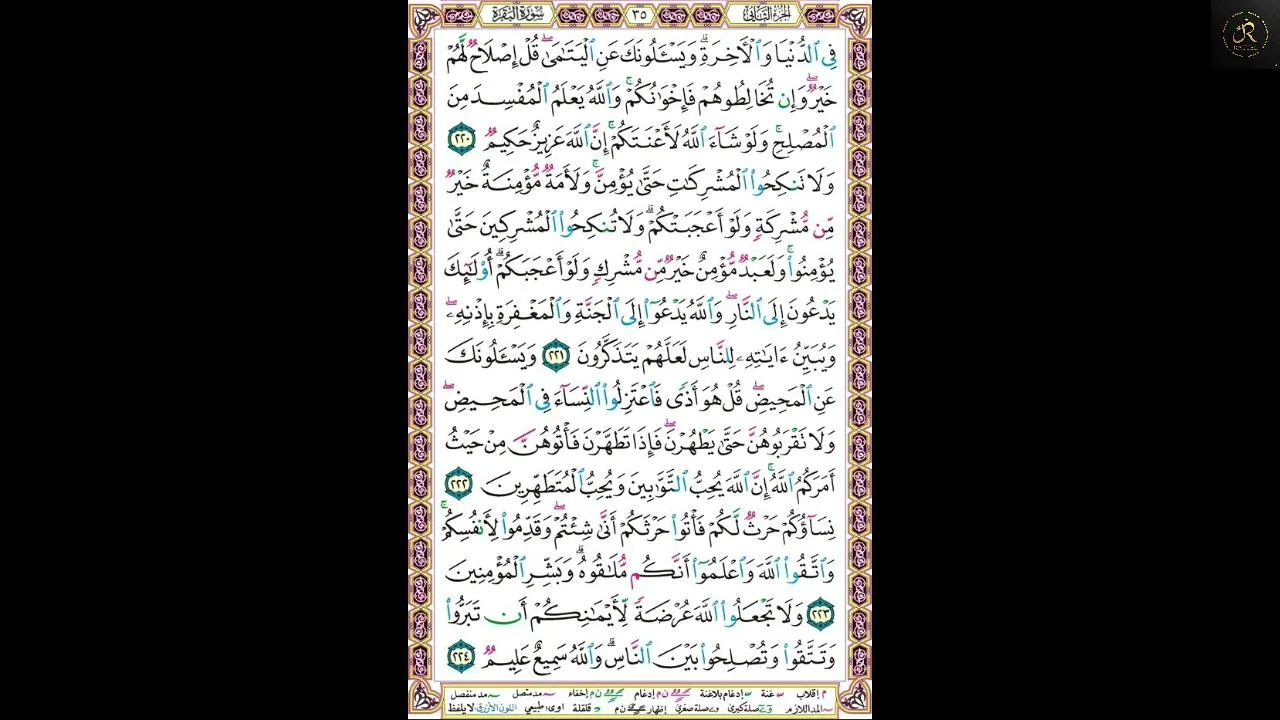 الجزء الثاني ٣٥ سورة البقرة
فِي الدُّنْيَا وَالْآخِرَةِ ۗ وَيَسْـَٔلُونَكَ عَنِ الْيَتَامَىٰ ۖ قُلْ إِصْلَاحٌ لَّهُمْ
خَيْرٌ ۖ وَإِن تُخَالِطُوهُمْ فَإِخْوَانُكُمْ ۚ وَاللَّهُ يَعْلَمُ الْمُفْسِدَ مِنَ
الْمُصْلِحِ ۚ وَلَوْ شَاءَ اللَّهُ لَأَعْنَتَكُمْ ۚ إِنَّ اللَّهَ عَزِيزٌ حَكِيمٌ ٢٢٠
وَلَا تَنكِحُوا الْمُشْرِكَاتِ حَتَّىٰ يُؤْمِنَّ ۚ وَلَأَمَةٌ مُّؤْمِنَةٌ خَيْرٌ
مِّن مُّشْرِكَةٍ وَلَوْ أَعْجَبَتْكُمْ ۗ وَلَا تُنكِحُوا الْمُشْرِكِينَ حَتَّىٰ
يُؤْمِنُوا ۚ وَلَعَبْدٌ مُّؤْمِنٌ خَيْرٌ مِّن مُّشْرِكٍ وَلَوْ أَعْجَبَكُمْ ۗ أُولَٰئِكَ
يَدْعُونَ إِلَى النَّارِ ۖ وَاللَّهُ يَدْعُوا إِلَى الْجَنَّةِ وَالْمَغْفِرَةِ بِإِذْنِهِ ۖ
وَيُبَيِّنُ ءَايَاتِهِ لِلنَّاسِ لَعَلَّهُمْ يَتَذَكَّرُونَ ٢٢١ وَيَسْـَٔلُونَكَ
عَنِ الْمَحِيضِ ۖ قُلْ هُوَ أَذًى فَاعْتَزِلُوا النِّسَاءَ فِي الْمَحِيضِ ۖ
وَلَا تَقْرَبُوهُنَّ حَتَّىٰ يَطْهُرْنَ ۖ فَإِذَا تَطَهَّرْنَ فَأْتُوهُنَّ مِنْ حَيْثُ
أَمَرَكُمُ اللَّهُ ۚ إِنَّ اللَّهَ يُحِبُّ التَّوَّابِينَ وَيُحِبُّ الْمُتَطَهِّرِينَ ٢٢٢
نِسَاؤُكُمْ حَرْثٌ لَّكُمْ فَأْتُوا حَرْثَكُمْ أَنَّىٰ شِئْتُمْ ۖ وَقَدِّمُوا لِأَنفُسِكُمْ ۚ
وَاتَّقُوا اللَّهَ وَاعْلَمُوا أَنَّكُم مُّلَاقُوهُ ۗ وَبَشِّرِ الْمُؤْمِنِينَ
٢٢٣ وَلَا تَجْعَلُوا اللَّهَ عُرْضَةً لِّأَيْمَانِكُمْ أَن تَبَرُّوا
وَتَتَّقُوا وَتُصْلِحُوا بَيْنَ النَّاسِ ۗ وَاللَّهُ سَمِيعٌ عَلِيمٌ ٢٢٤
م إقلاب غنة إدغام بلاغنة ن م إدغام ن م إخفاء مد متصل مد منفصل
المد اللازم صلة كبرى صلة صغرى إظهار ن م قلقلة اوى: طبيعي اللون الأزرق لا يلفظ